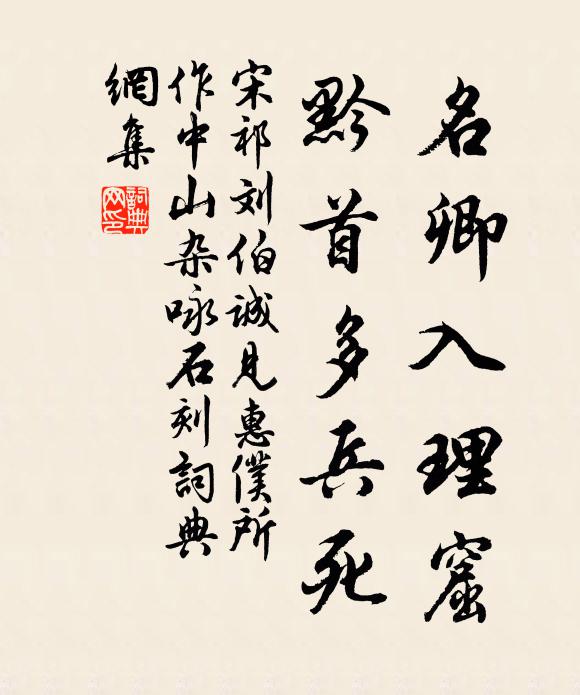 名卿入理窟
黔首多兵死
宋祁刘伯诚見惠僕所
作中山杂咏石刻詞典
網集
詞典网印